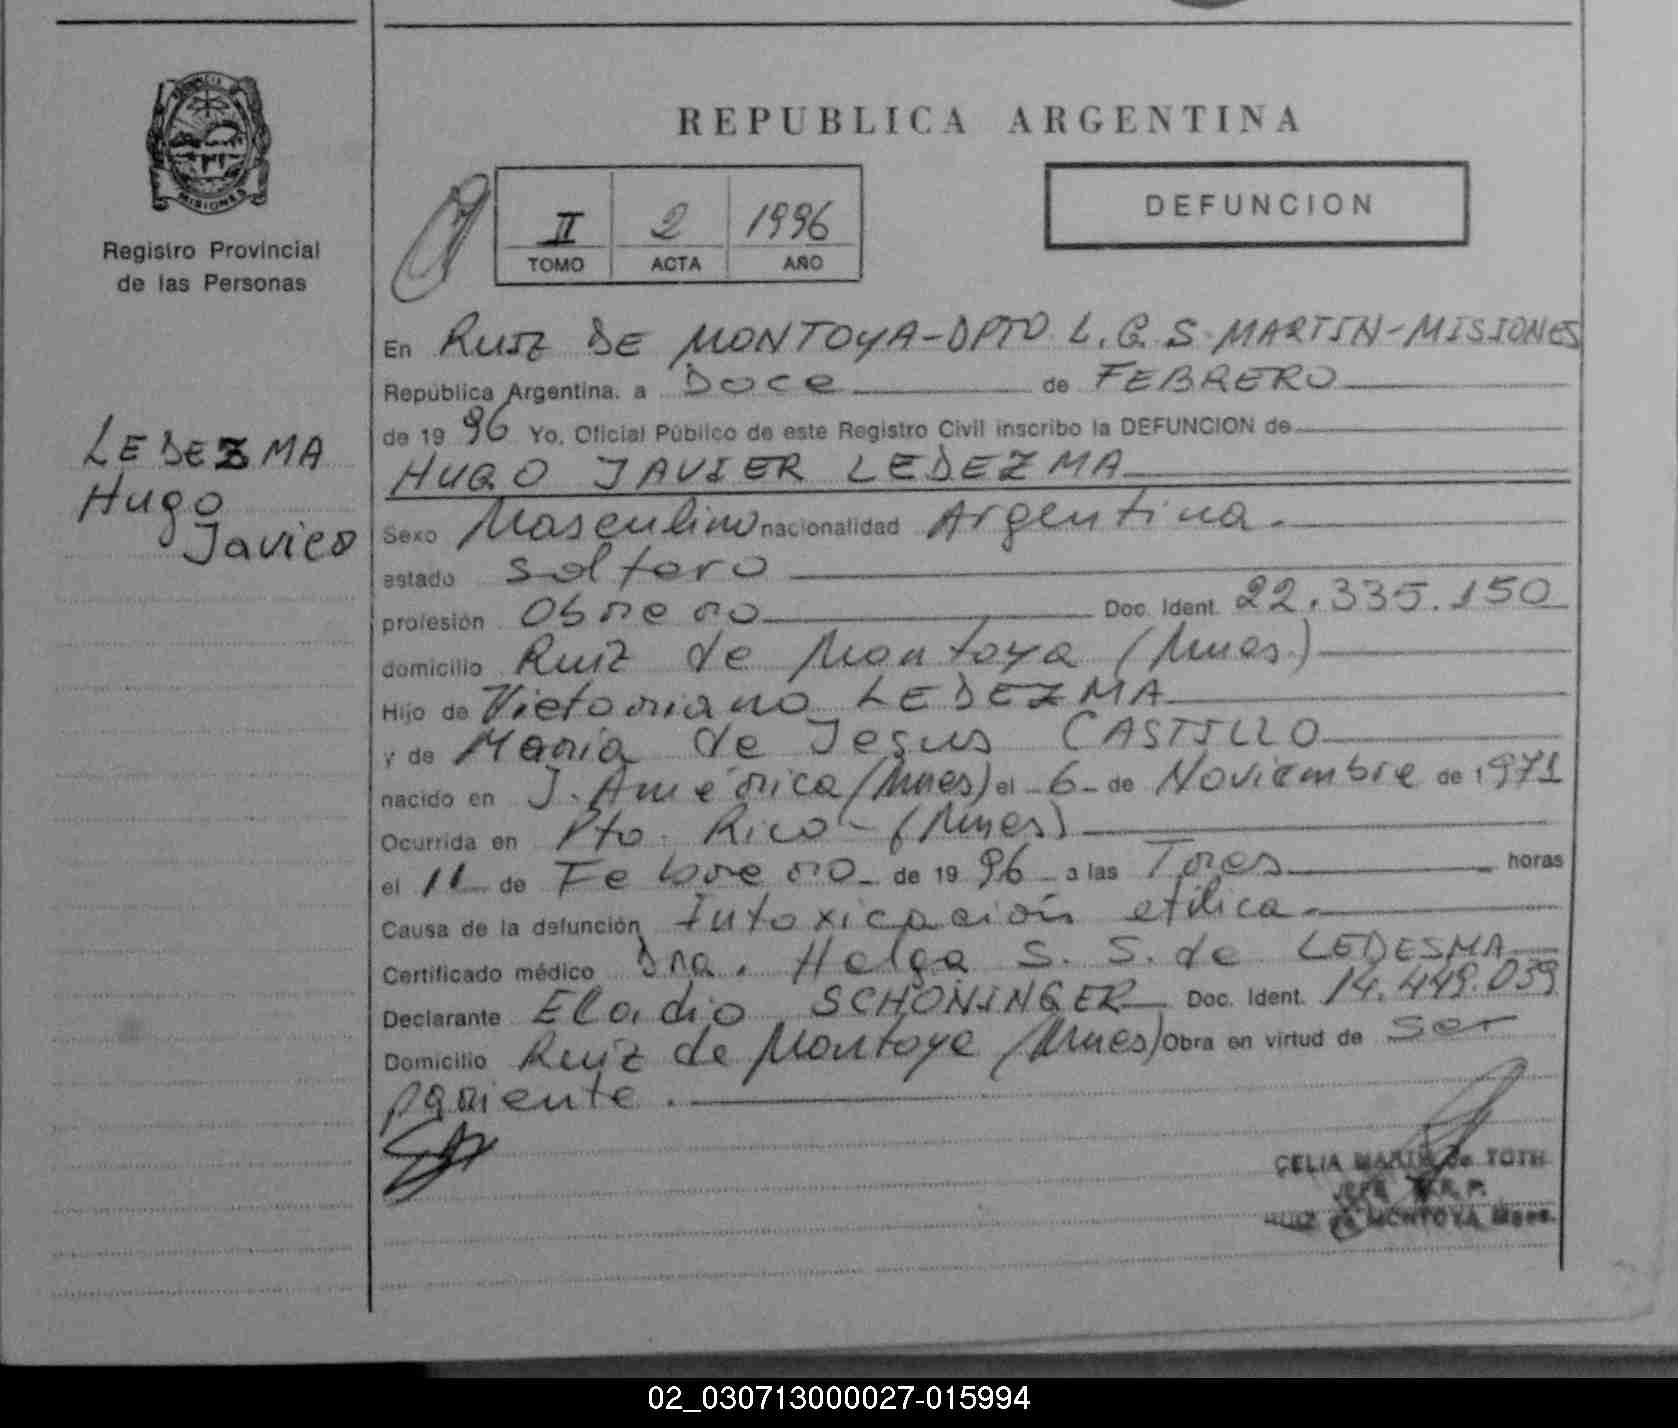 PROVINCIA
MISIONES
Registro Provincial
de las Personas
LEDEZMA
Hugo
Javier
REPUBLICA ARGENTINA
II 2 1996
TOMO ACTA AÑO
DEFUNCION
En RUIZ DE MONTOYA-DPTO L.G.S. MARTIN-MISIONES
República Argentina. a Doce de FEBRERO
de 1996 Yo, Oficial Público de este Registro Civil inscribo la DEFUNCION de
HUGO JAVIER LEDEZMA
Sexo Masculino nacionalidad Argentina.
estado soltero
profesión Obrero Doc. Ident. 22.335.150
domicilio Ruiz de Montoya (Mnes.)
Hijo de Victoriano LEDEZMA
y de María de Jesus CASTILLO
nacido en J. América (Mnes) el -6- de Noviembre de 1971
Ocurrida en Pto. Rico - (Mnes)
el 11 de Febrero de 1996 a las Tres horas
Causa de la defunción Intoxicación etílica.
Certificado médico Dra. Helga S. S. de LEDESMA
Declarante Eladio SCHONINGER Doc. Ident. 14.449.039
Domicilio Ruiz de Montoya (Mnes) Obra en virtud de ser
pariente.
CELIA de TOTH
JEFE R. P.
RUIZ de MONTOYA Mnes.
02_030713000027-015994